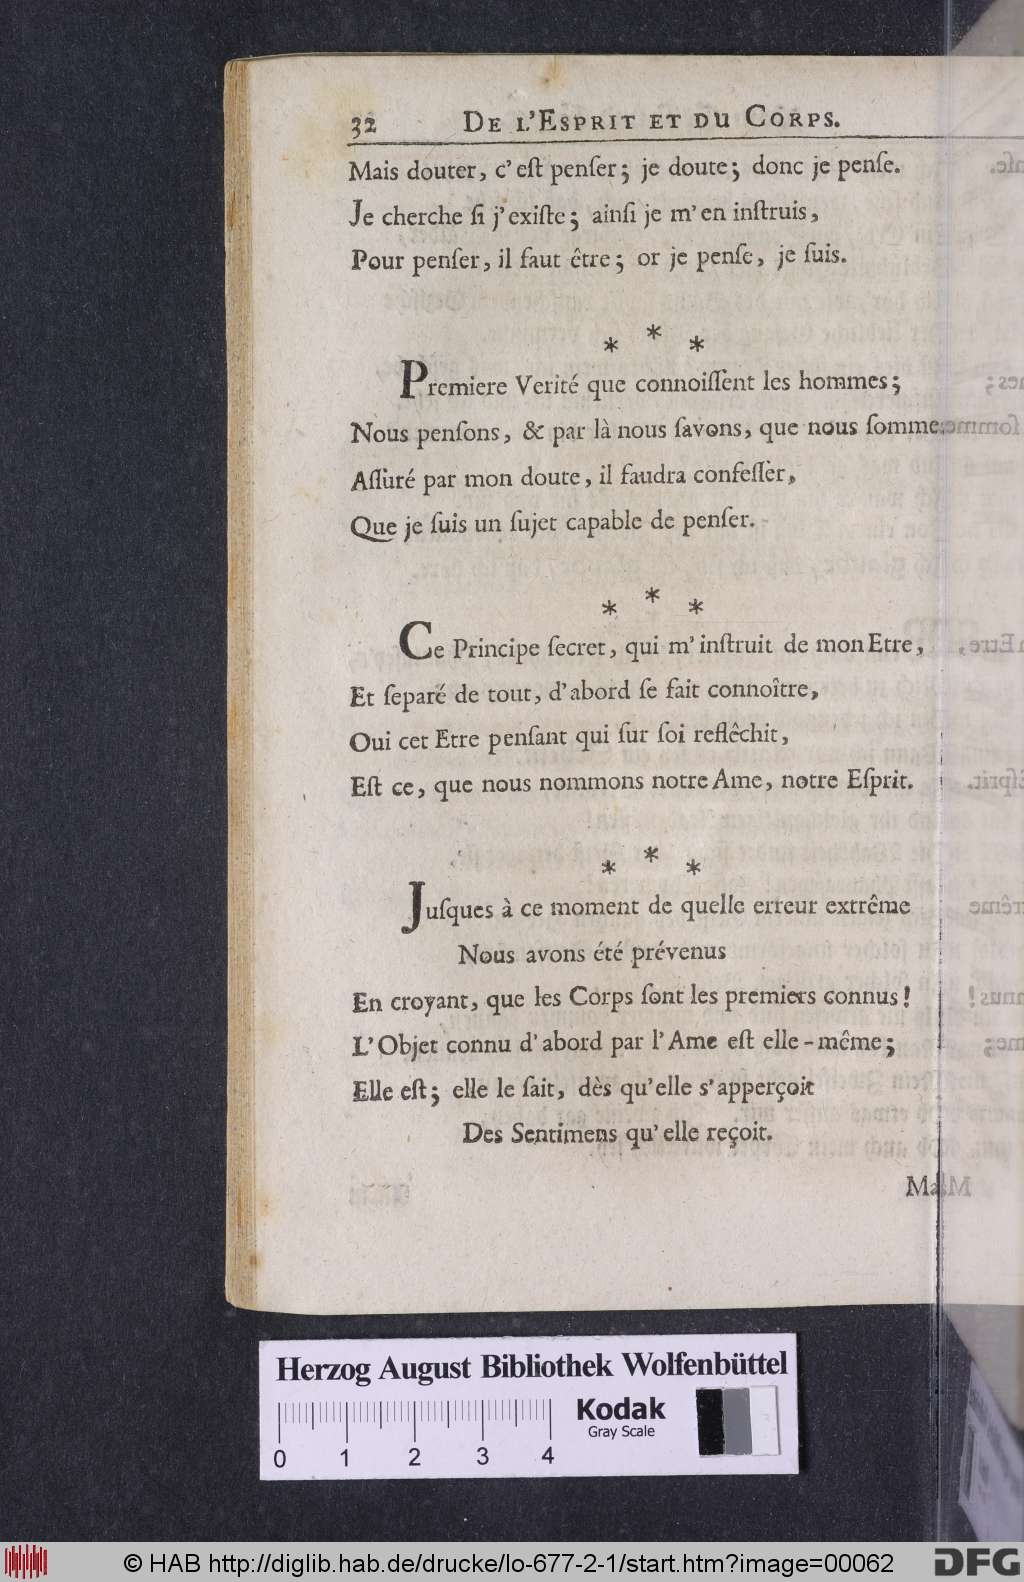 32 DE L'ESPRIT ET DU CORPS.
Mais douter, c'eſt penſer; je doute; donc je penſe.
Je cherche ſi j'exiſte; ainſi je m'en inſtruis,
Pour penſer, il faut être; or je penſe, je ſuis.
* * *
Premiere Verité que connoiſſent les hommes;
Nous penſons, & par là nous ſavons, que nous ſomme
Aſſuré par mon doute, il faudra confeſſer,
Que je ſuis un ſujet capable de penſer.
* * *
Ce Principe ſecret, qui m'inſtruit de mon Etre,
Et ſeparé de tout, d'abord ſe fait connoître,
Oui cet Etre penſant qui ſur ſoi reflêchit,
Eſt ce, que nous nommons notre Ame, notre Eſprit.
* * *
Juſques à ce moment de quelle erreur extrême
Nous avons été prévenus
En croyant, que les Corps ſont les premiers connus!
L'Objet connu d'abord par l'Ame eſt elle-même;
Elle eſt; elle le ſait, dès qu'elle s'apperçoit
Des Sentimens qu'elle reçoit.
Herzog August Bibliothek Wolfenbüttel
Kodak
Gray Scale
0 1 2 3 4
© HAB http://diglib.hab.de/drucke/lo-677-2-1/start.htm?image=00062
DFG